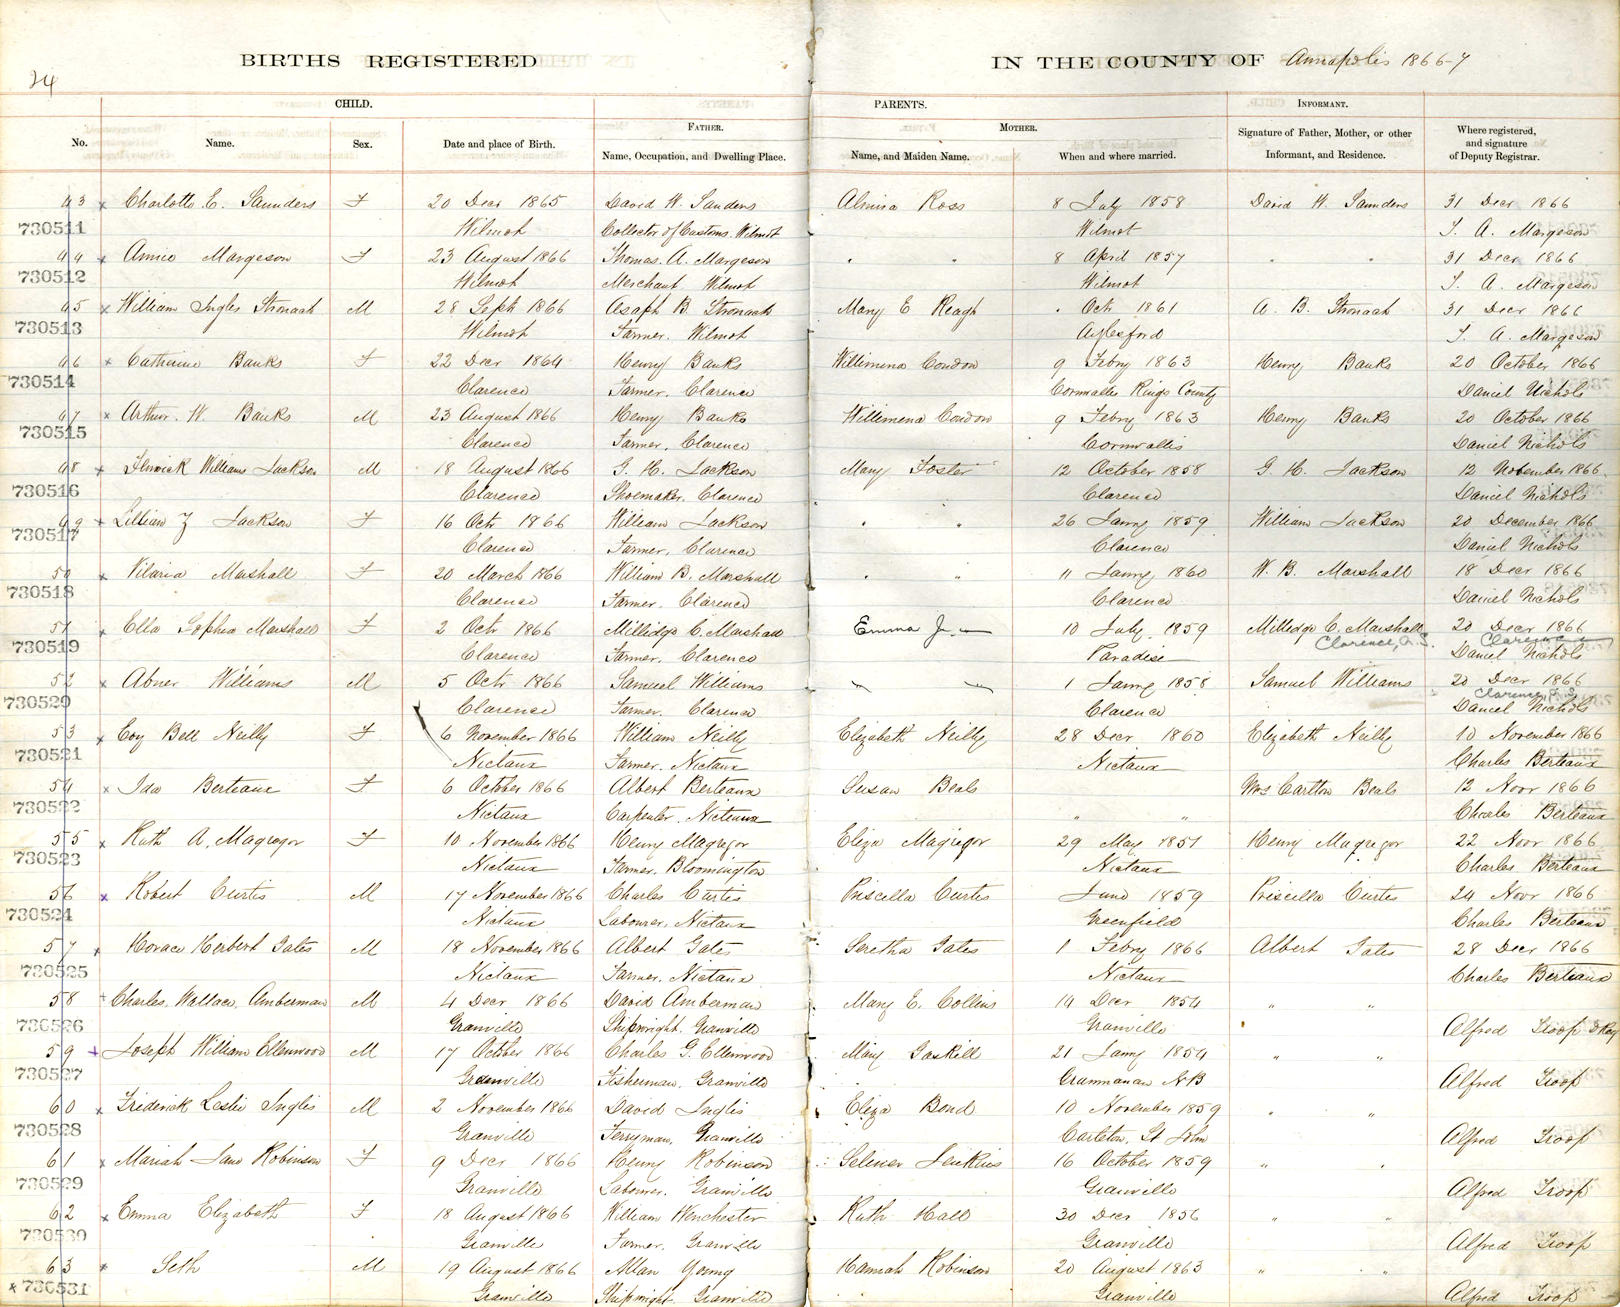 BIRTHS REGISTERED IN THE COUNTY OF Annapolis 1866-7
24
CHILD. PARENTS. INFORMANT.
FATHER. MOTHER.
No. Name. Sex. Date and place of Birth. Name, Occupation, and Dwelling Place. Name, and Maiden Name. When and where married. Signature of Father, Mother, or other Informant, and Residence. Where registered, and signature of Deputy Registrar.
43 x Charlotte E. Saunders F 20 Decr 1865 David W. Sanders Almira Ross 8 July 1858 David W Saunders 31 Decr 1866
730511 Wilmot Collector of Customs. Wilmot Wilmot T. A. Margeson
44 x Annie Margeson F 23 August 1866 Thomas. A. Margeson " " 8 April 1857 " " 31 Decr 1866
730512 Wilmot Merchant Wilmot Wilmot T. A. Margeson
45 x William Ingles Stronach M 28 Sept 1866 Asaph B. Stronach Mary E Reagh " Oct 1861 A. B. Stronach 31 Decr 1866
730513 Wilmot Farmer. Wilmot Aylesford T. A. Margeson
46 x Catherine Banks F 22 Decr 1864 Henry Banks Willimena Condon 9 Febry 1863 Henry Banks 20 October 1866
730514 Clarence Farmer. Clarence Cornwallis Kings County Daniel Nichols
47 x Arthur. W. Banks M 23 August 1866 Henry Banks Willimena Condon 9 Febry 1863 Henry Banks 20 October 1866
730515 Clarence Farmer. Clarence Cornwallis Daniel Nichols
48 x Fenwick William Jackson M 18 August 1866 G. H. Jackson Mary Foster 12 October 1858 G. H. Jackson 12 November 1866
730516 Clarence Shoemaker. Clarence Clarence Daniel Nichols
49 x Lillian Z Jackson F 16 Octr 1866 William Jackson " " 26 Janry 1859 William Jackson 20 December 1866
730517 Clarence Farmer. Clarence Clarence Daniel Nichols
50 x Vilaria Marshall F 20 March 1866 William B. Marshall " " 11 Janry 1860 W. B. Marshall 18 Decr 1866
730518 Clarence Farmer. Clarence Clarence Daniel Nichols
51 x Ella Sophia Marshall F 2 Octr 1866 Millidge C. Marshall Emma J. 10 July 1859 Milledge C. Marshall 20 Decr 1866
730519 Clarence Farmer. Clarence Paradise Clarence, Clarence Daniel Nichols
52 x Abner Williams M 5 Octr 1866 Samuel Williams " " 1 Janry 1858 Samuel Williams 20 Decr 1866
730520 Clarence Farmer. Clarence Clarence Clarence, Daniel Nichols
53 x Evy Bell Neilly F 6 November 1866 William Neilly Elizabeth Neilly 28 Decr 1860 Elizabeth Neilly 10 November 1866
730521 Nictaux Farmer. Nictaux Nictaux Charles Berteaux
54 x Ida Berteaux F 6 October 1866 Albert Berteaux Susan Beals Mrs Carlton Beals 12 Novr 1866
730522 Nictaux Carpenter. Nictaux " " Charles Berteaux
55 x Ruth A. Magregor F 10 November 1866 Henry Magregor Eliza Magregor 29 May 1851 Henry Magregor 22 Novr 1866
730523 Nictaux Farmer. Bloomington Nictaux Charles Berteaux
56 x Robert Curtis M 17 November 1866 Charles Curtis Priscella Curtis June 1859 Priscilla Curtis 24 Novr 1866
730524 Nictaux Labourer, Nictaux Greenfield Charles Berteaux
57 x Horace Herbert Gates M 18 November 1866 Albert Gates Seretha Gates 1 Febry 1866 Albert Gates 28 Decr 1866
730525 Nictaux Farmer. Nictaux Nictaux Charles Berteaux
58 x Charles. Wallace. Amberman M 4 Decr 1866 David Amberman Mary E. Collins 14 Decr 1854 " "
730526 Granville Shipwright. Granville Granville Alfred Troop D Reg
59 x Joseph William Ellenwood M 17 October 1866 Charles G. Ellenwood Mary Gaskill 21 Janry 1854 " "
730527 Granville Fisherman. Granville Grammanan N B Alfred Troop
60 x Friderick Leslie Inglis M 2 November 1866 David Inglis Eliza Bond 10 November 1859 " "
730528 Granville Ferryman, Granville Carleton, St John Alfred Troop
61 x Mariah Jane Robinson F 9 Decr 1866 Henry Robinson Seliner Jenkins 16 October 1859 " "
730529 Granville Labourer. Granville Granville Alfred Troop
62 x Emma Elizabeth F 18 August 1866 William Winchester Ruth Hall 30 Decr 1856 " "
730530 Granville Farmer. Granville Granville Alfred Troop
63 Seth M 19 August 1866 Allan Young Hannah Robinson 20 August 1863 " "
x 730531 Granville Shipwright. Granville Granville Alfred Troop